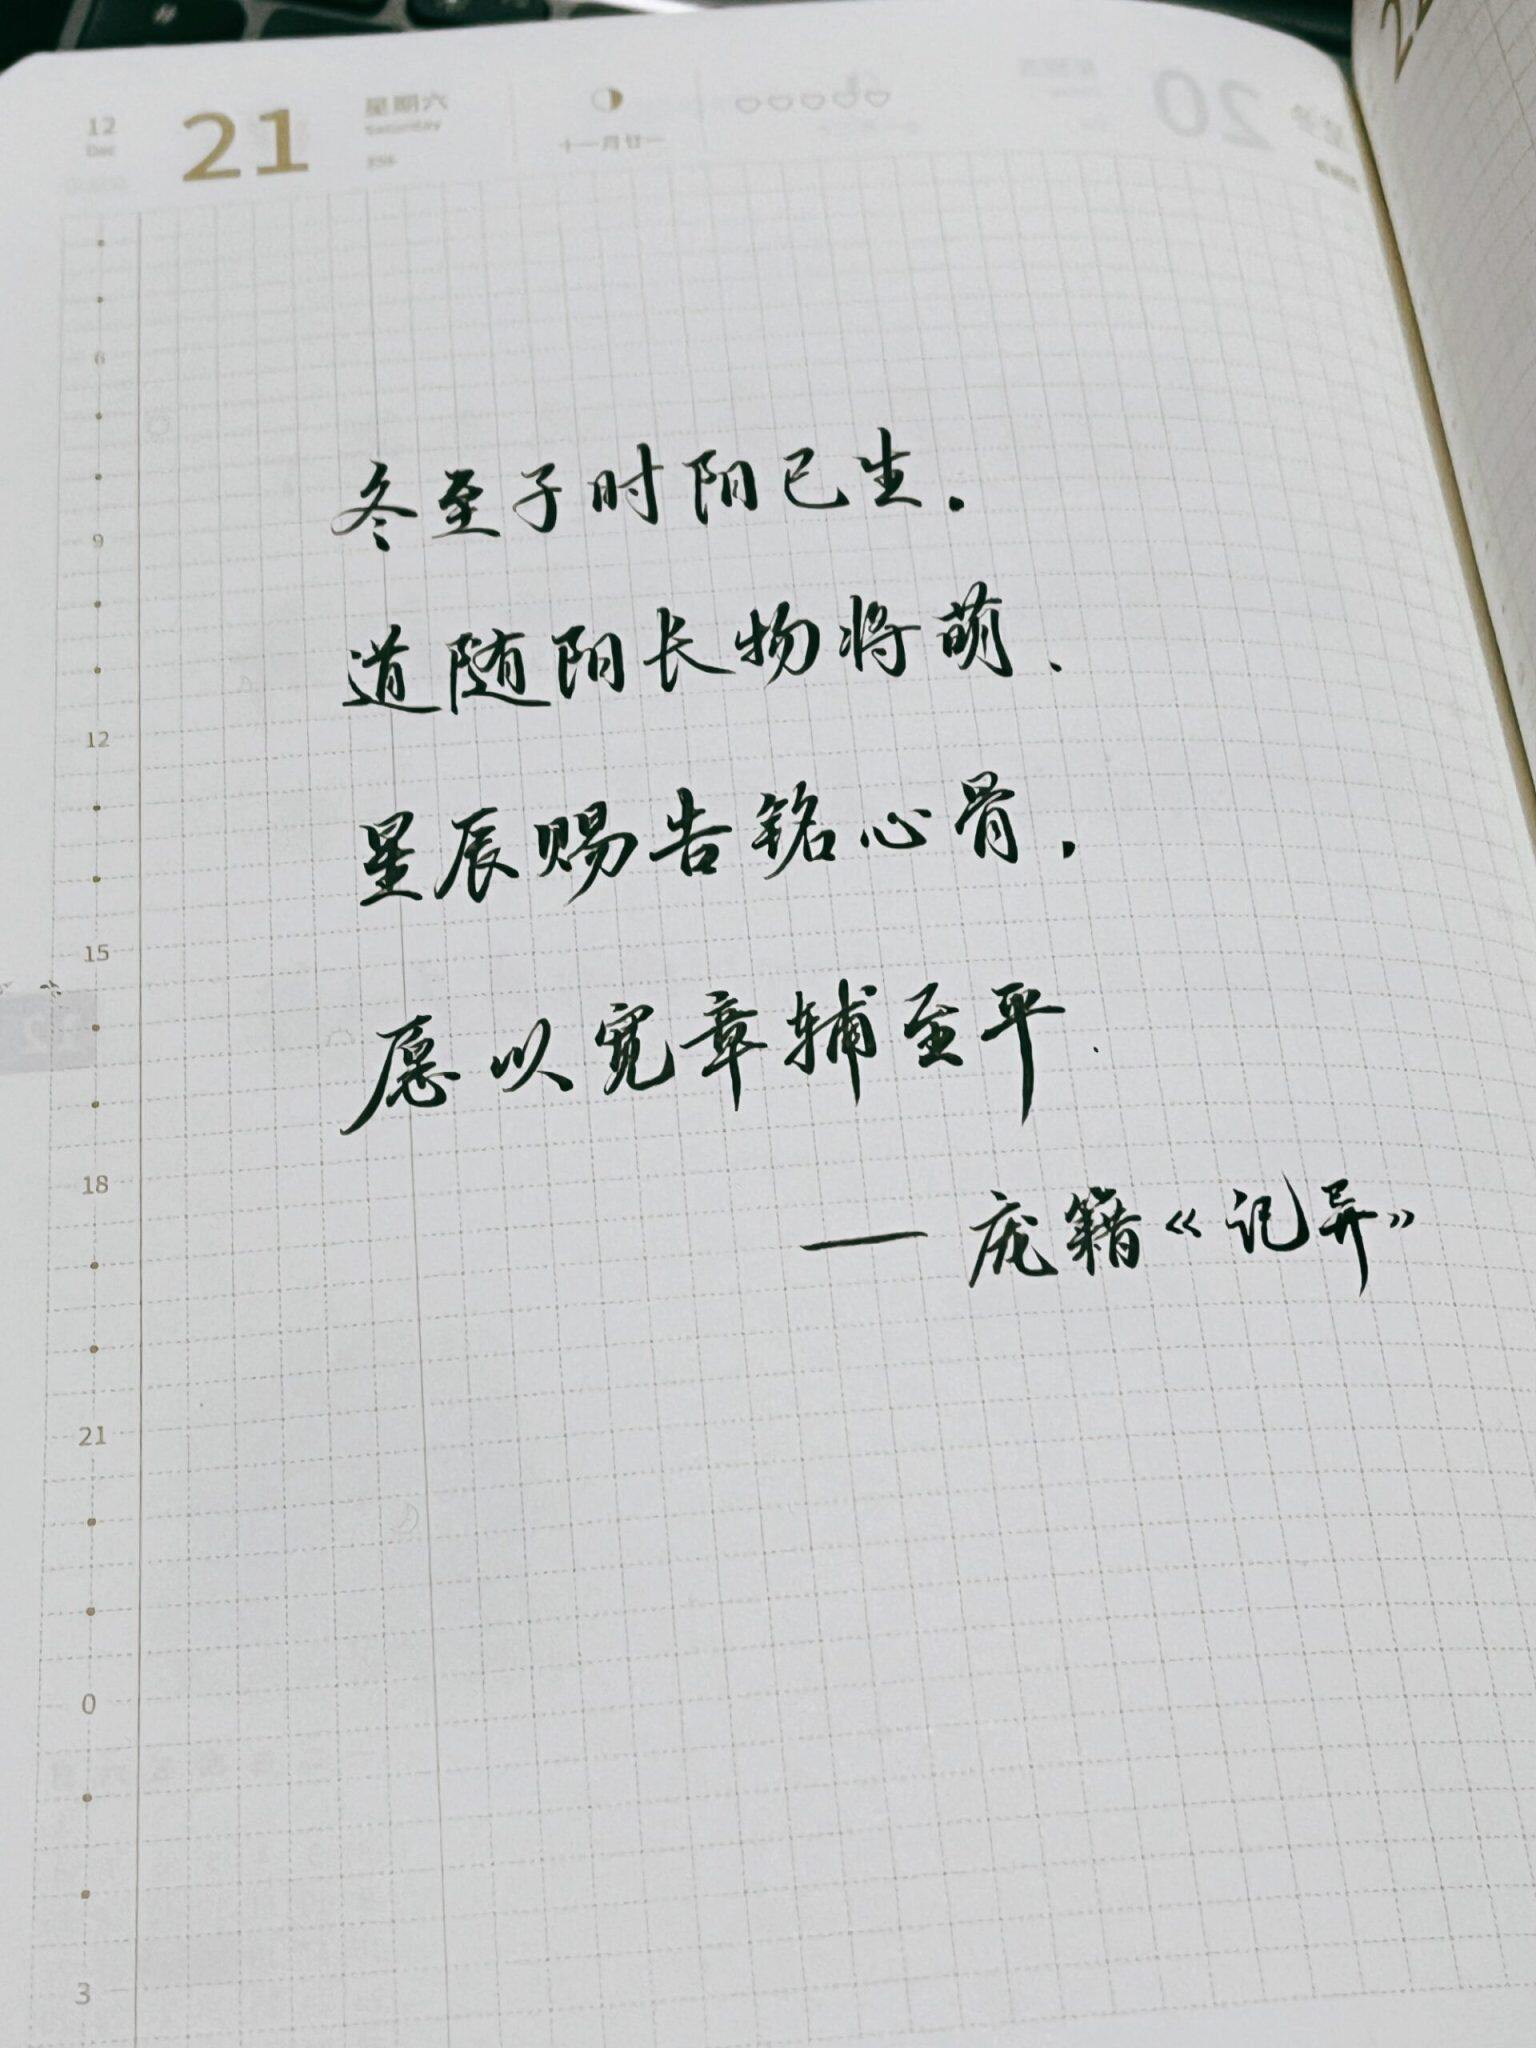 12
Dec
21
星期六
Saturday
356
十一月廿一
20
6
9
12
15
18
21
0
3
冬至子时阳已生.
道随阳长物将萌.
星辰赐告铭心骨.
愿以宽章辅至平.
——庞籍《记异》